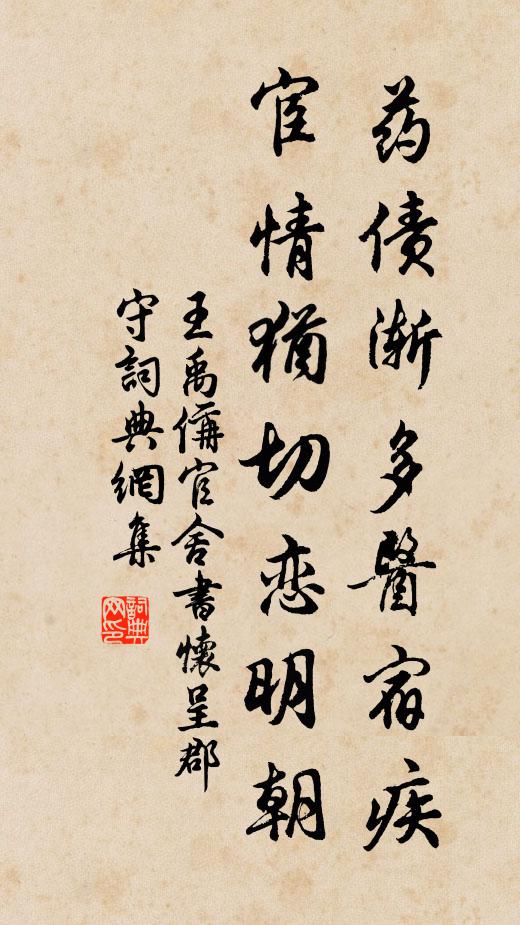 药债渐多医宿疾
宦情犹切恋明朝
王禹偁官舍書懷呈郡
守詞典網集
詞典网印